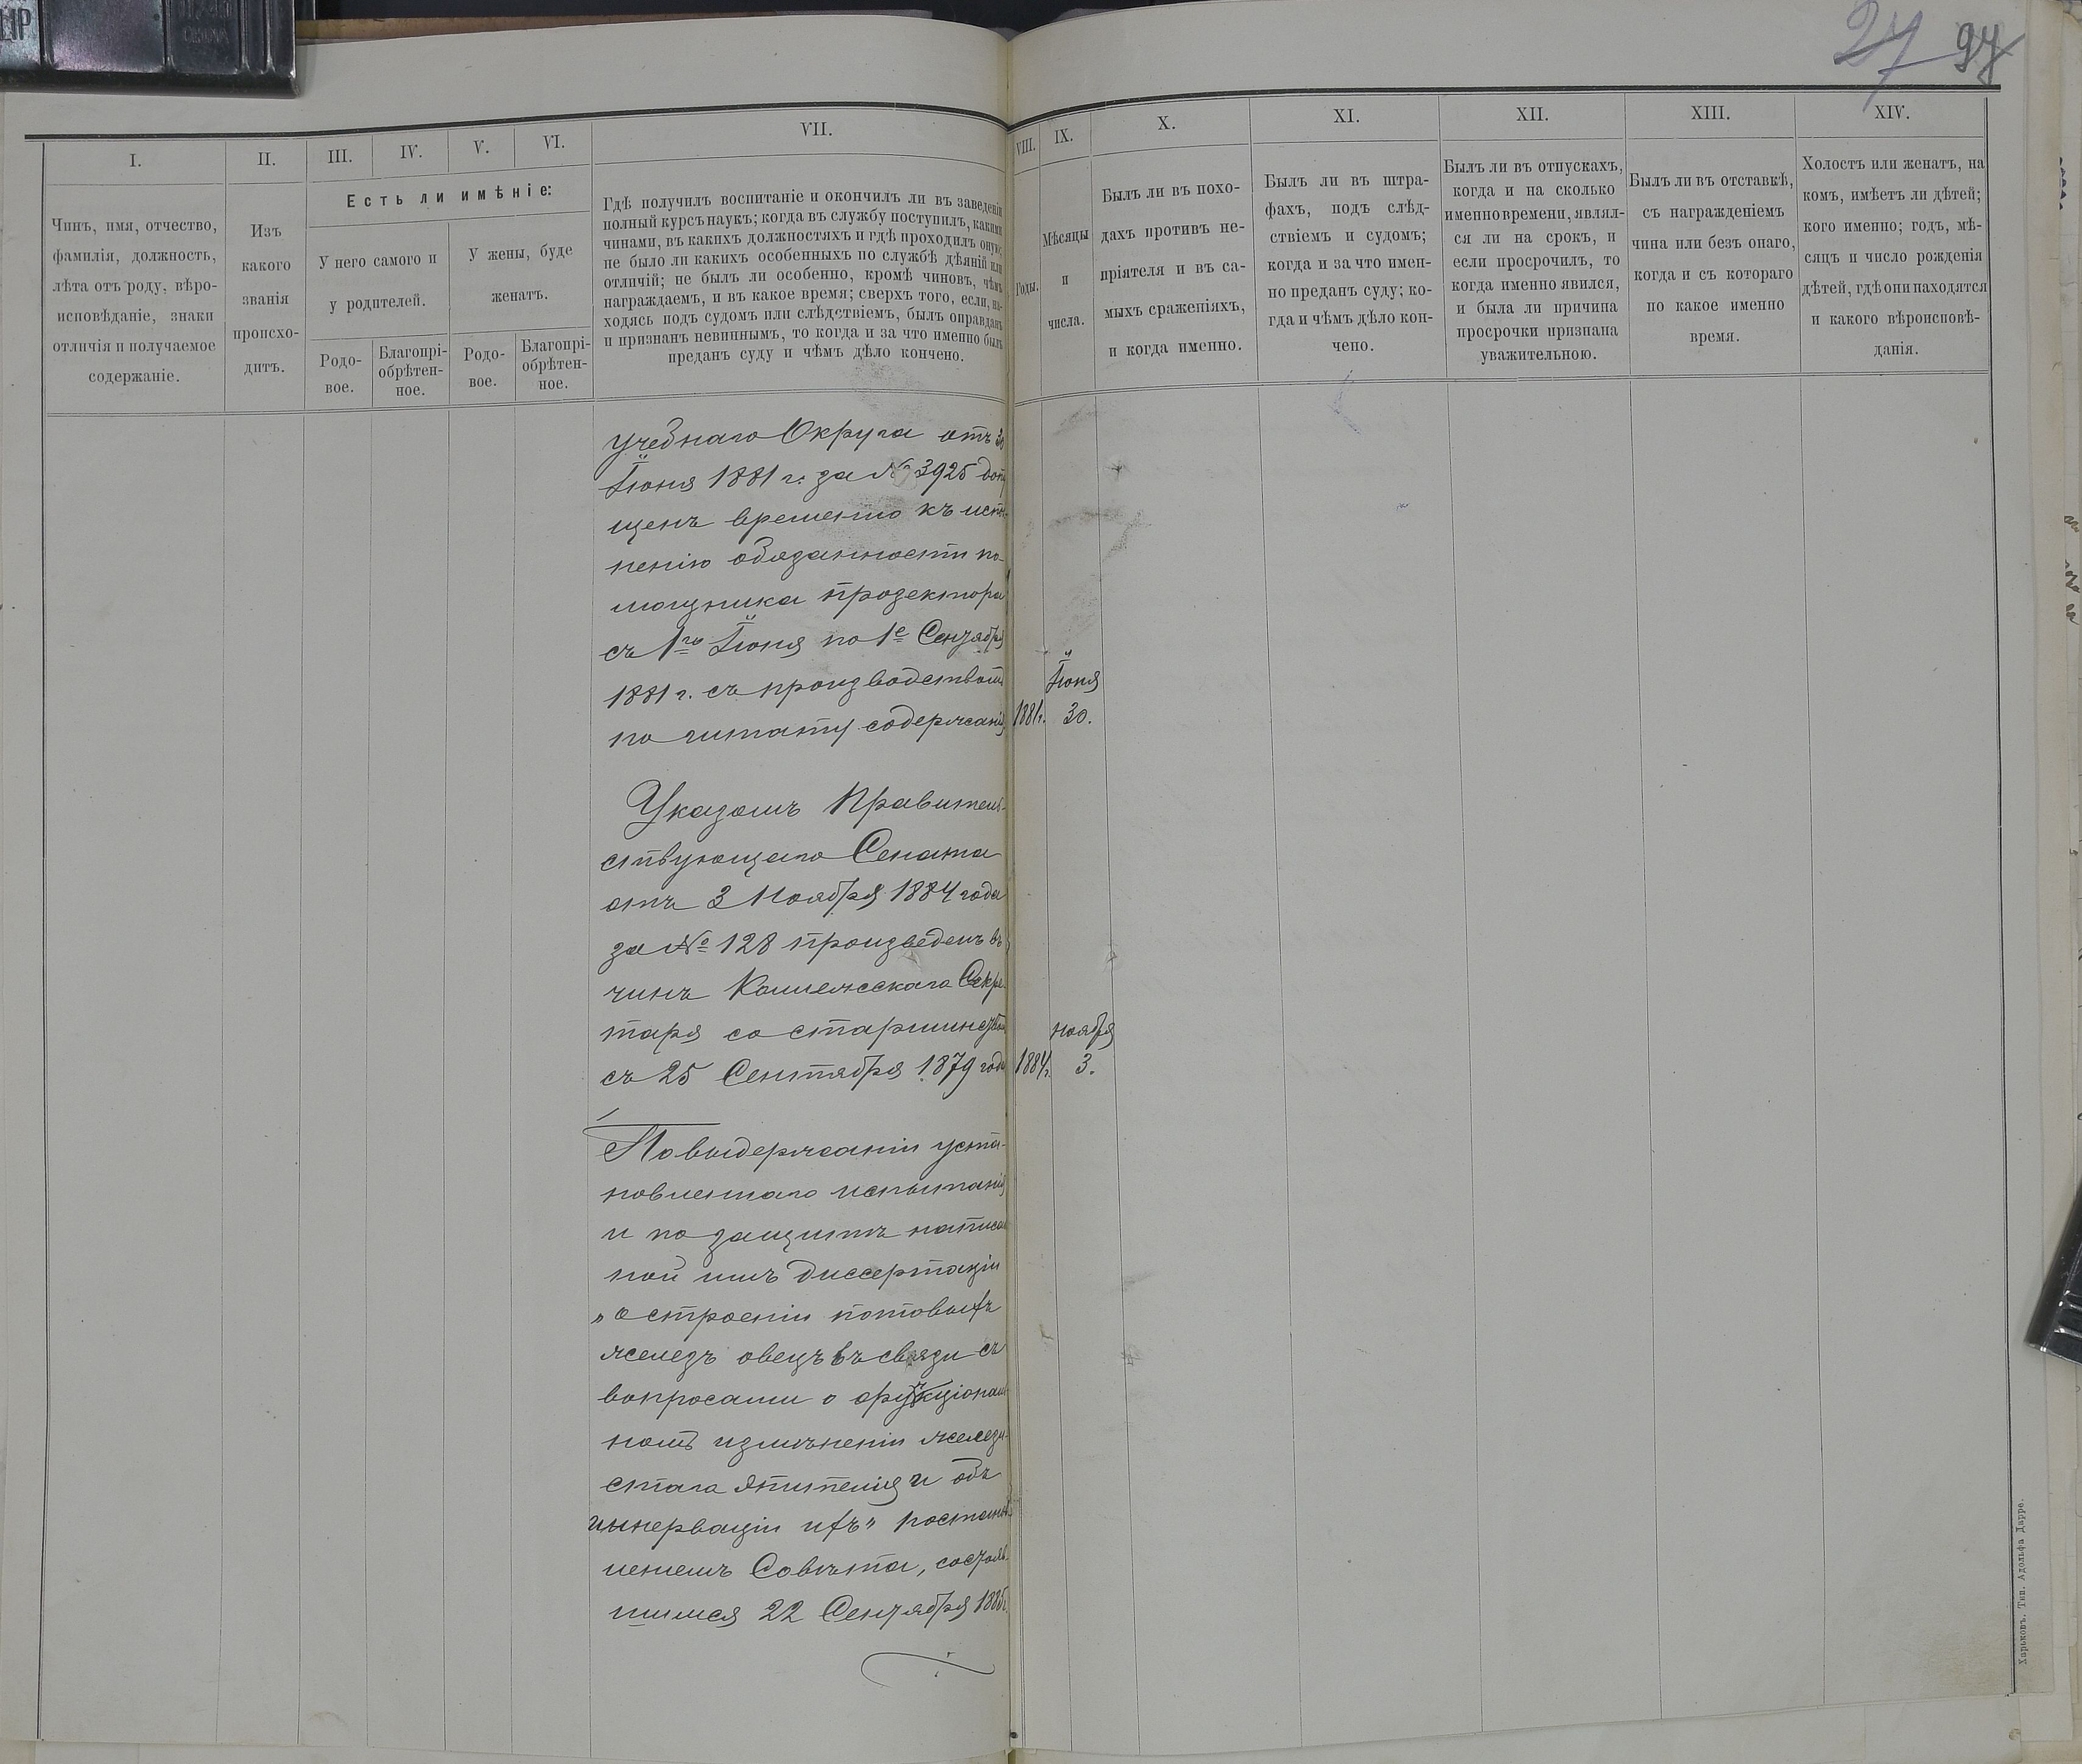 27 97
I.
II.
III.
IV.
V.
VI.
VII.
VIII.
IX.
X.
XI.
XII.
XIII.
XIV.
Чинъ, имя, отчество,
фамилія, должность,
лѣта отъ роду, вѣро-
исповѣданіе, знаки
отличія и получаемое
содержаніе.
Изъ
какого
званія
происхо-
дитъ.
Есть ли имѣніе:
У него самого и
у родителей.
У жены, буде
женатъ.
Родо-
вое.
Благопрі-
обрѣтен-
ное.
Родо-
вое.
Благопрі-
обрѣтен-
ное.
Гдѣ получилъ воспитаніе и окончилъ ли въ заведеніи
полный курсъ наукъ; когда въ службу поступилъ, какими
чинами, въ какихъ должностяхъ и гдѣ проходилъ оную;
не было ли какихъ особенныхъ по службѣ дѣяній или
отличій; не былъ ли особенно, кромѣ чиновъ, чѣмъ
награждаемъ, и въ какое время; сверхъ того, если, на-
ходясь подъ судомъ или слѣдствіемъ, былъ оправданъ
и признанъ невиннымъ, то когда и за что именно былъ
преданъ суду и чѣмъ дѣло кончено.
Годы.
Мѣсяцы
и
числа.
Былъ ли въ похо-
дахъ противъ не-
пріятеля и въ са-
мыхъ сраженіяхъ,
и когда именно.
Былъ ли въ штра-
фахъ, подъ слѣд-
ствіемъ и судомъ;
когда и за что имен-
но преданъ суду; ко-
гда и чѣмъ дѣло кон-
чено.
Былъ ли въ отпускахъ,
когда и на сколько
именно времени, являл-
ся ли на срокъ, и
если просрочилъ, то
когда именно явился,
и была ли причина
просрочки признана
уважительною.
Былъ ли въ отставкѣ,
съ награжденіемъ
чина или безъ онаго,
когда и съ котораго
по какое именно
время.
Холостъ или женатъ, на
комъ, имѣетъ ли дѣтей;
кого именно; годъ, мѣ-
сяцъ и число рожденія
дѣтей, гдѣ они находятся
и какого вѣроисповѣ-
данія.
учебнаго Округа отъ 30
Іюня 1881 г. за № 3925 допу
щенъ временно къ испол-
ненію обязанности по-
мощника прозектора
съ 1го Іюня по 1е Сентября
1881 г. съ производствомъ
по штату содержанія
Іюня
1881г. 30.
Указомъ Правитель-
ствующаго Сената
отъ 3 Ноября 1884 года
за № 128 произведенъ въ
чинъ Коллежскаго Секре-
таря со старшинствомъ
съ 25 Сентября 1879 года
ноября
1884г. 3.
По выдержаніи уста-
новленнаго испытанія
и по защитѣ написан
ной имъ диссертаціи
„о строеніи потовыхъ
железъ овецъ въ связи съ
вопросами о функціональ
номъ измѣненіи желези-
стаго эпителія и объ
иннерваціи ихъ" постанов
леніемъ Совѣта, состояв-
шимся 22 Сентября 1885г.
Харьковъ. Тип. Адольфа Дарре.